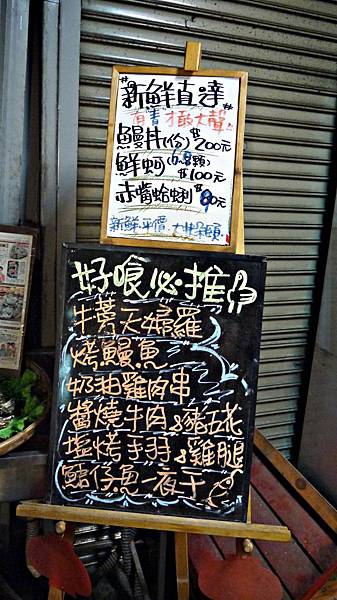 新鮮直達
有青才敢大聲!!
鰻丼(份)$200元
鮮蚵(6-8顆)$100元
赤嘴蛤蜊$90元
新鮮.平價.大快朵頤
好喰必推
牛蒡天婦羅
烤鰻魚
奶油雞肉串
醬燒牛肉&豬五花
塩烤手羽&雞腿
鱈仔魚一夜干